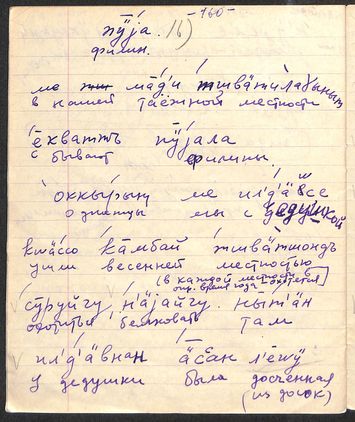 -160-
пӱ̄ја. 16)
филин.
ме мāди тшвӓтчилаɣыным
в нашей таёжной местности
ēкваттъ пӱ̄јала
с бывают филины.
оккыры̄ӈ ме ил'д'ӓ̄ссе
однажды мы с дедушкой
кwӓссо кāмбай тшвӓтшондъ
ушли весенней местностью
(в каждой местности в
время года охотятся)
сӯруйгу н'ӓ̄јайгу ны̄т'ӓн
охотиться белковать там
ил'д'ӓ̄внан ӓ̄са̄н л'ēwӱ
у дедушки была досчённая
(из досок)